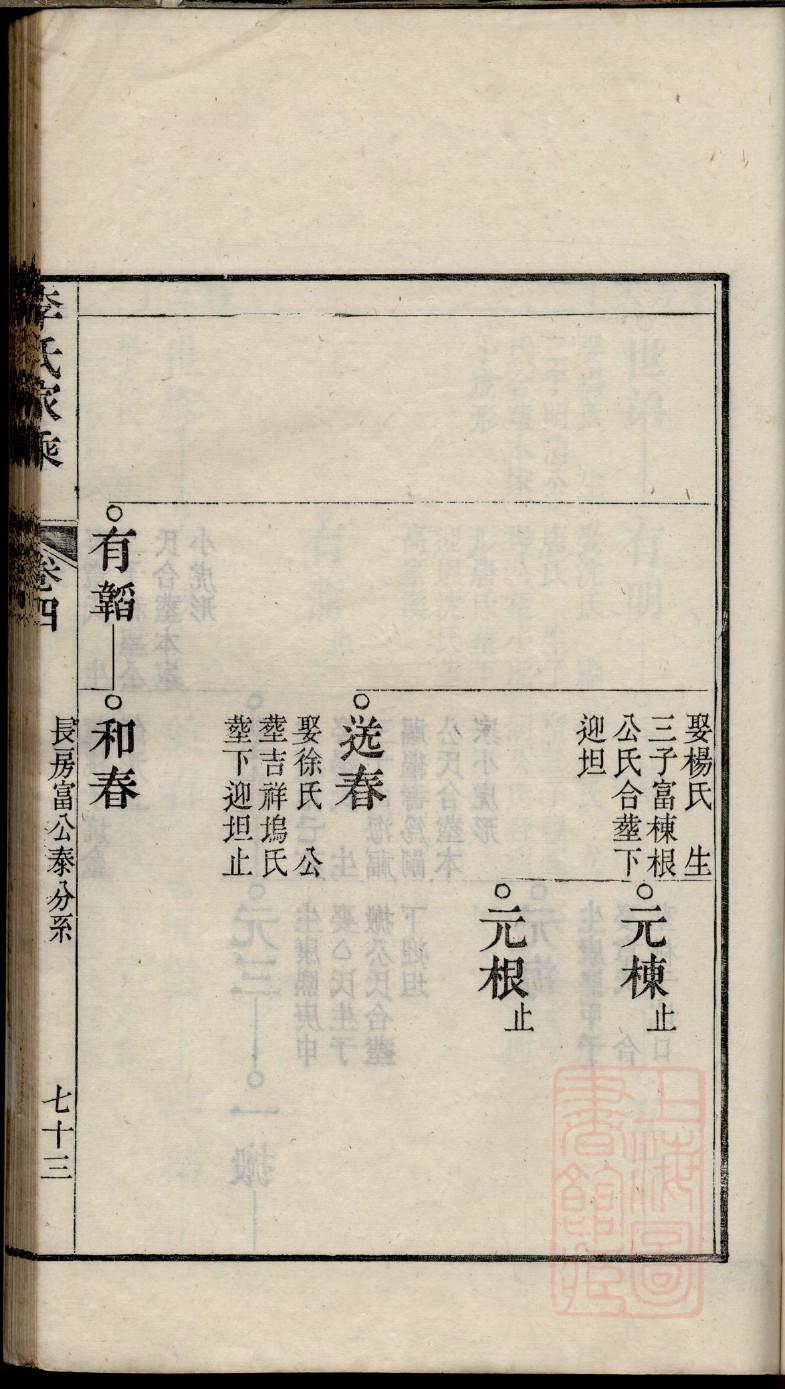 娶楊氏　生
三子富棟根
公氏合塟下
迎坦
元棟止
元根止
送春
娶徐氏　公
塟吉祥塢氏
塟下迎坦止
有韜
和春
李氏家乘
卷四
長房富公泰分系
七十三
上海圖
書館藏